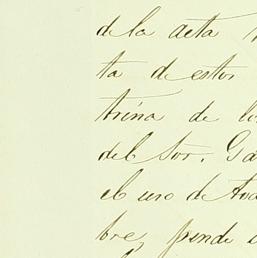 de la acta
ta de estos
trina de lo
del Sor. Ga
el uso de
bre, pende